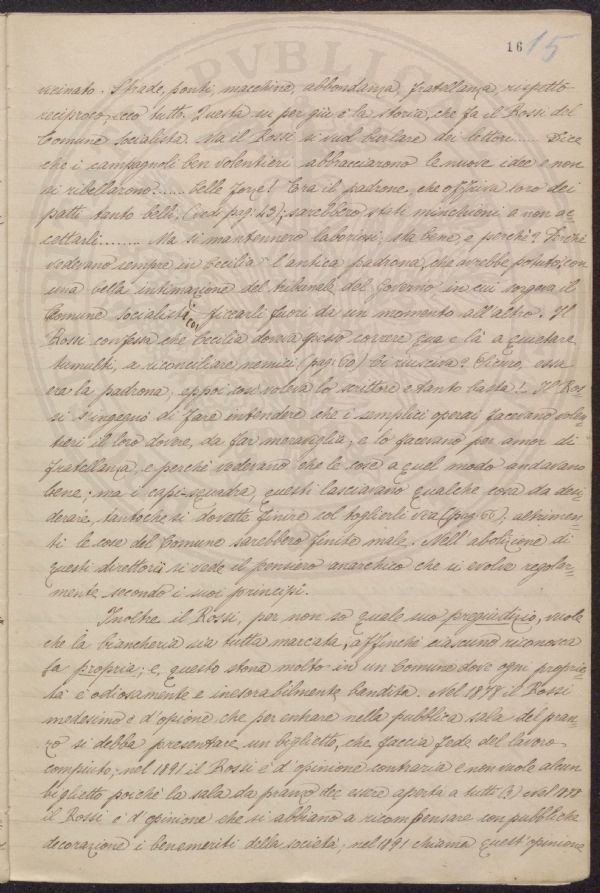 16 15
vicinato. Strade, ponti, macchine, abbondanza, fratellanza, rispetto
reciproco, ecco tutto. Questa su per giù è la storia, che fa il Rossi del
Comune socialista. Ma il Rossi si vuol burlare dei lettori..... Dice
che i campagnoli ben volentieri abbracciarono le nuove idee e non
si ribellarono?..... belle forze! Era il padrone, che offriva loro dei
patti tanto belli, (vedi pag. 43); sarebbero stati minchioni a non ac=
cettarli........ Ma si mantennero laboriosi; sta bene, e perchè? Perchè
vedevano sempre in Cecilia l'antica padrona, che avrebbe potuto, con
una bella intimazione del tribunale del Governo in cui sorgeva il
Comune socialistico, ficcarli fuori da un momento all'altro. Il
Rossi confessa che Cecilia doveva spesso correre qua e là a quietare
tumulti, a riconciliare nemici (pag. 60) Ci riusciva? Sicuro, essa
era la padrona, eppoi così voleva lo scrittore e tanto basta!.. Il Ros=
si s'ingegnò di fare intendere che i semplici operai facevano volen=
tieri il loro dovere, da far meraviglia, e lo facevano per amor di
fratellanza, e perchè vedevano che le cose a quel modo andavano
bene; ma i capi-squadra, questi lasciavano qualche cosa da desi=
derare, tantochè si dovette finire col toglierli via (pag. 66), altrimen=
ti le cose del Comune sarebbero finite male. Nell'abolizione di
questi direttori si vede il pensiero anarchico che si evolve regolar=
mente secondo i suoi principî.
Inoltre il Rossi, per non so quale suo pregiudizio, vuole
che la biancheria sia tutta marcata, affinchè ciascuno riconosca
la propria; e, questo stona molto in un Comune dove ogni proprie=
tà è odiosamente e inesorabilmente bandita. Nel 1878 il Rossi
medesimo è d'opione che per entrare nella pubblica sala del pran=
zo si debba presentare un biglietto, che faccia fede del lavoro
compiuto; nel 1891 il Rossi è d'opinione contraria e non vuole alcun
biglietto poichè la sala da pranzo dee essere aperta a tutti (3) Nel 1878
il Rossi è d'opinione che si abbiano a ricompensare con pubbliche
decorazione i benemeriti della società; nel 1891 chiama quest'opinione